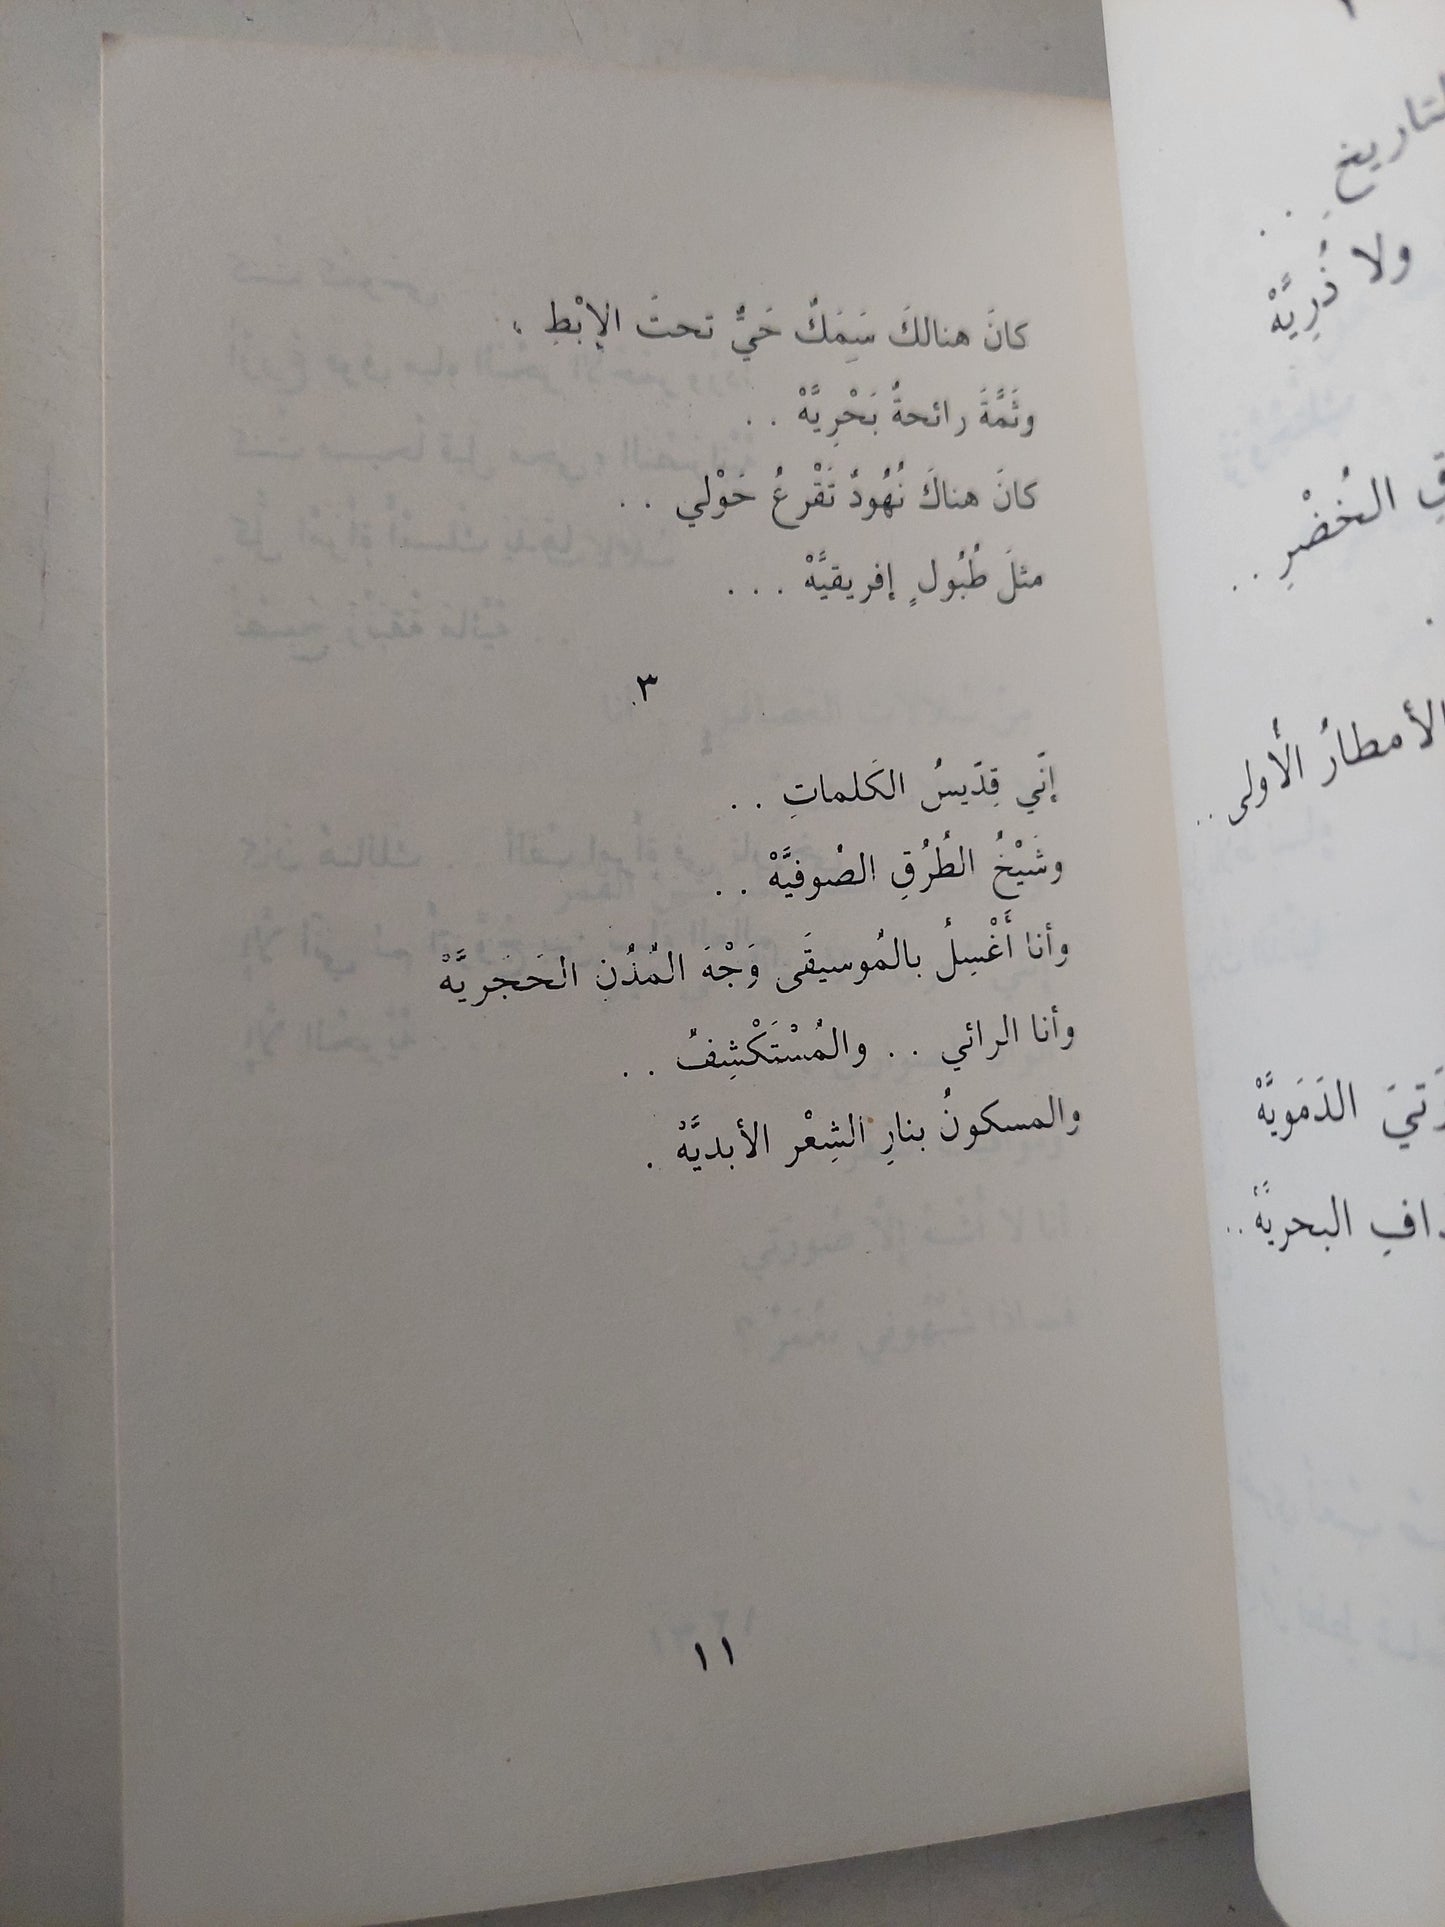 كانَ هنالكَ سَمَكٌ حَيٌّ تحتَ الإِبْطِ ،
وثَمَّةَ رائحةٌ بَحْرِيَّهْ . .
كانَ هناكَ نُهُودٌ تَقْرعُ حَوْلي . .
مثلَ طُبُولٍ إفريقيَّهْ . . .
٣
إنّي قِدّيسُ الكَلماتِ . .
وشَيْخُ الطُرُقِ الصُوفيَّهْ . .
وأنا أَغْسِلُ بالمُوسيقَى وَجْهَ المُدُنِ الحَجَريَّهْ
وأنا الرائي . . والمُسْتَكْشِفُ . .
والمسكونُ بنارِ الشِعْر الأبديَّهْ .
١١
التاريخِ . .
ولا ذُرِيَّهْ
الخُضْرِ . .
الأمطارُ الأولى . .
الدَمَويَّهْ
البحريَّهْ . .